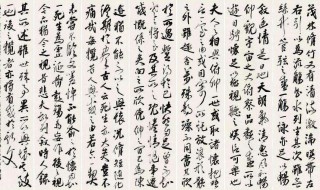 茂林修竹又有清流激湍映帶左
右引以為流觴曲水列坐其次雖無
絲竹管弦之盛一觴一詠亦足以暢
敘幽情是日也天朗氣清惠風和暢
仰觀宇宙之大俯察品類之盛所以
遊目騁懷足以極視聽之娛信可樂也
夫人之相與俯仰一世或取諸懷抱
悟言一室之內或因寄所託放浪形骸
之外雖趣舍萬殊靜躁不同當其欣
於所遇暫得於己快然自足不知老之
將至及其所之既倦情隨事遷
感慨係之矣向之所欣俛仰之間
跡猶不能不以之興懷況修短隨化
終期於盡古人云死生亦大矣豈不
痛哉每覽昔人興感之由若合一契
未嘗不臨文嗟悼不能喻之於懷固知
一死生為虛誕齊彭殤為妄作後之視
今亦猶今之視昔悲夫故列敘時人錄
其所述雖世殊事異所以興懷其致一
也後之覽者亦將有感於斯文